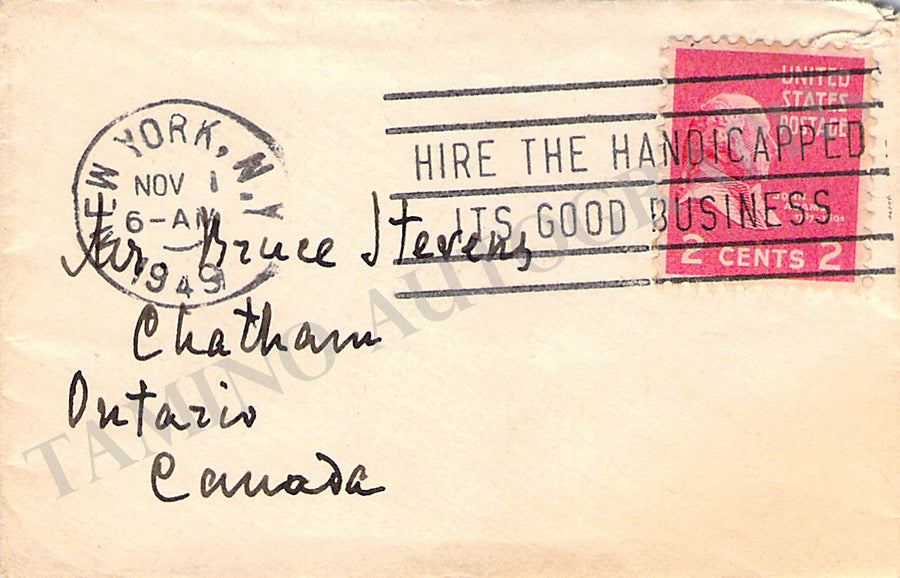 NEW YORK, N.Y.
NOV 1
6-AM
1949
HIRE THE HANDICAPPED
ITS GOOD BUSINESS
UNITED
STATES
POSTAGE
JOHN
ADAMS
2 CENTS 2
Mr Bruce Stevens
Chatham
Ontario
Canada
TAMINO AUTOGR